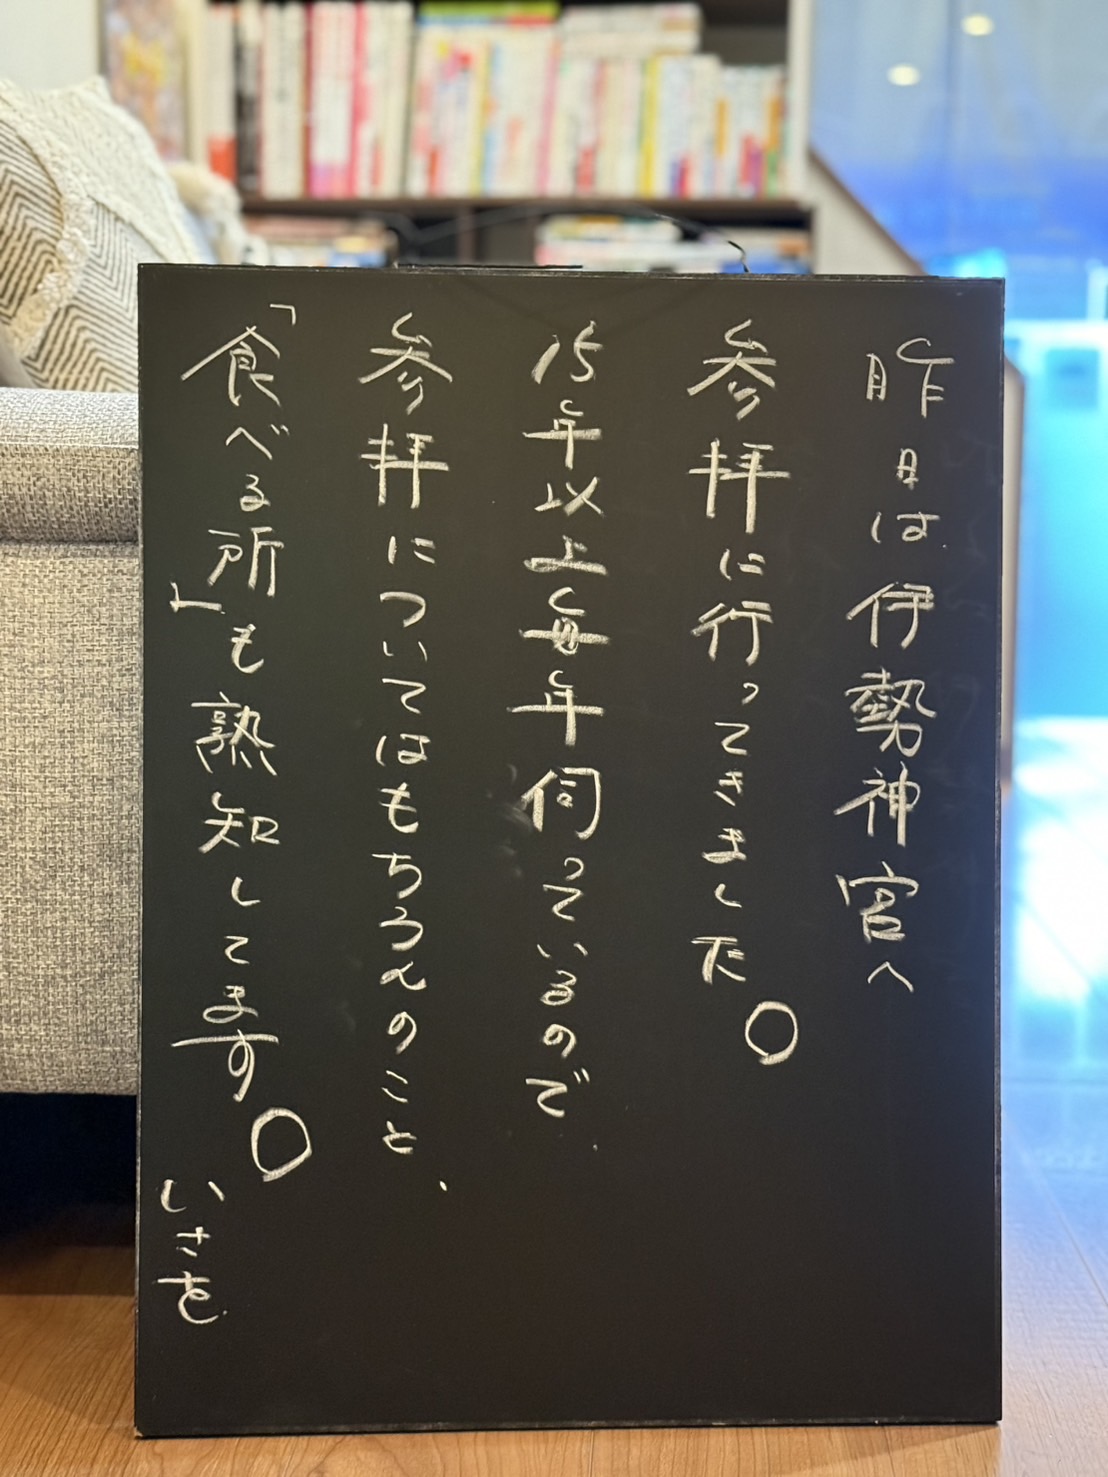 昨日は伊勢神宮へ
参拝に行ってきました。
15年以上毎年伺っているので
参拝についてはもちろんのこと、
「食べる所」も熟知してます。
いさを